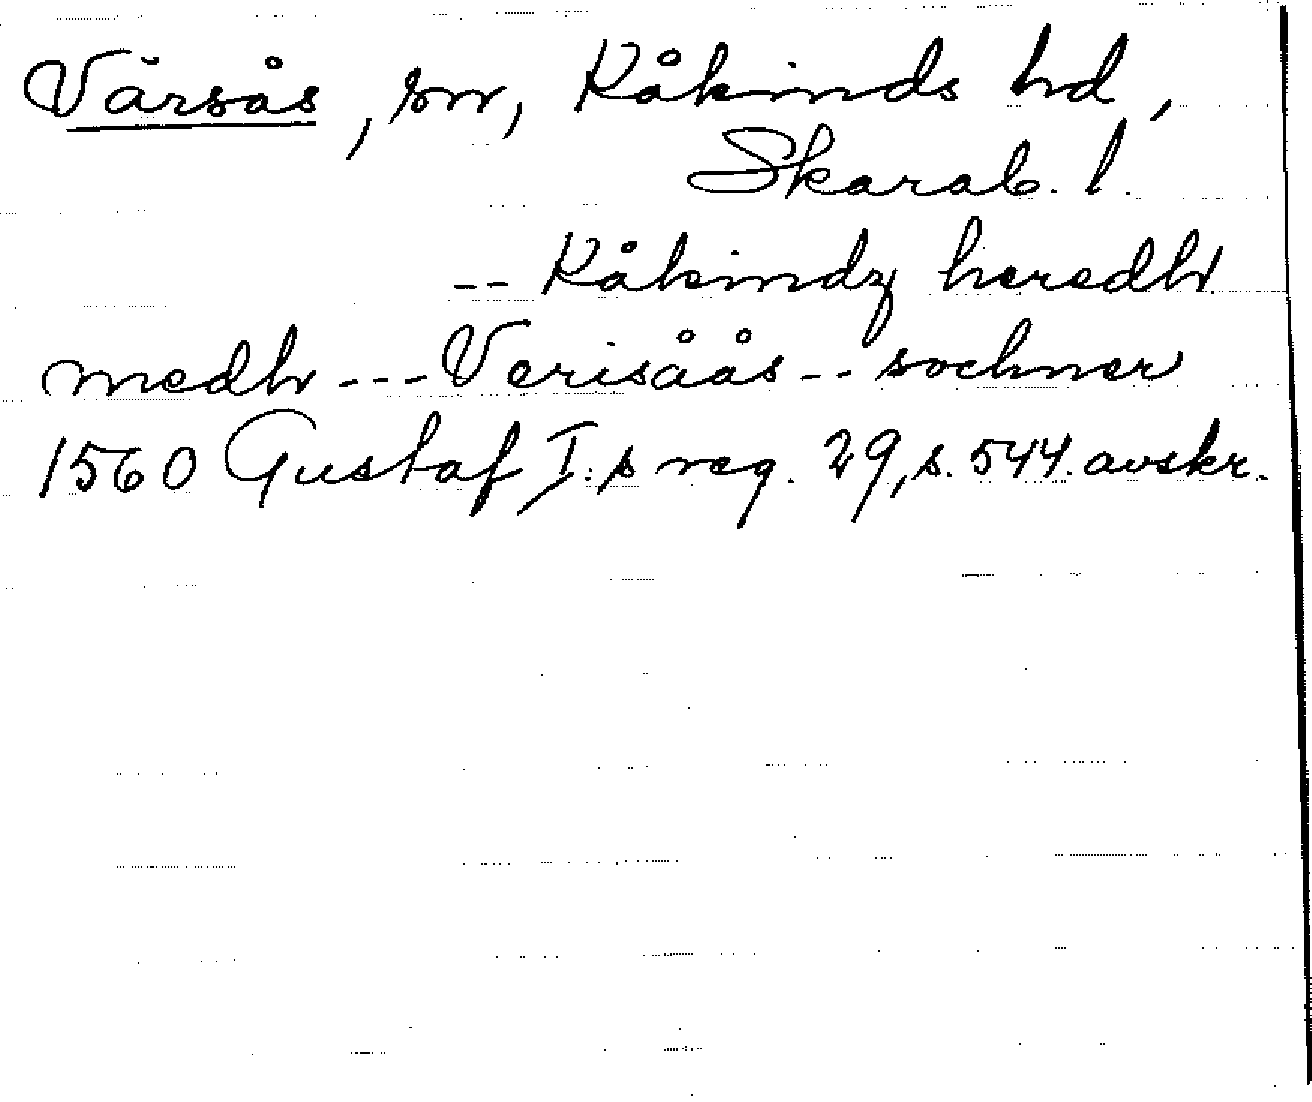 Vårsås, sn, Kåkinds hd,
Skarab. l.
-- Kåkindz heredh
medh --- Verisåås -- sochner
1560 Gustaf I:s reg. 29, s. 544. avskr.